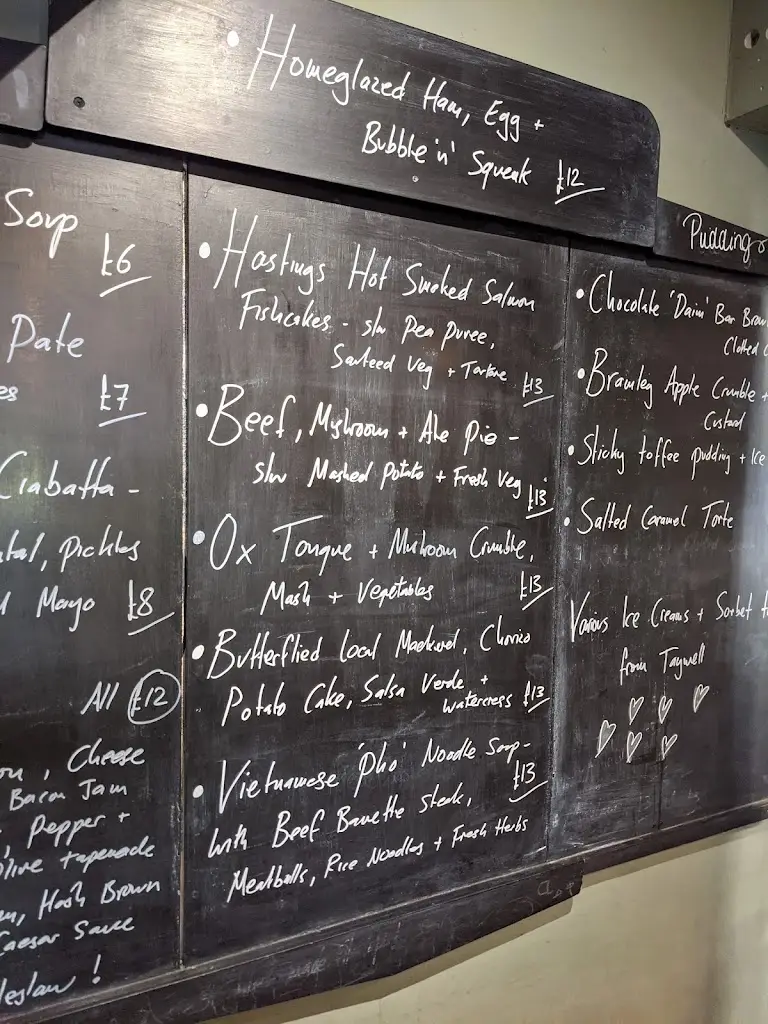 • Homeglazed Ham, Egg +
Bubble 'n' Squeak £12
Soup
£6
Date
£7
Ciabatta -
Pickles
Mayo £8
All £12
, Cheese
Bacon Jam
, Pepper +
tapenade
, Hash Brown
Caesar Sauce
!
• Hastings Hot Smoked Salmon
Fishcakes - s/w Pea Puree,
Sauteed Veg + Tartare £13
• Beef, Mushroom + Ale Pie -
s/w Mashed Potato + Fresh Veg £13
• Ox Tongue + Mushroom Crumble,
Mash + Vegetables £13
• Butterflied Local Mackerel, Chorizo
Potato Cake, Salsa Verde +
watercress £13
• Vietnamese 'Pho' Noodle Soup -
£13
With Beef Bavette Steak,
Meatballs, Rice Noodles + Fresh Herbs
Puddings
• Chocolate 'Daim' Bar
Clotted
• Bramley Apple Crumble +
Custard
• Sticky toffee pudding + Ice
• Salted Caramel Torte
Various Ice Creams + Sorbet
from Taywell